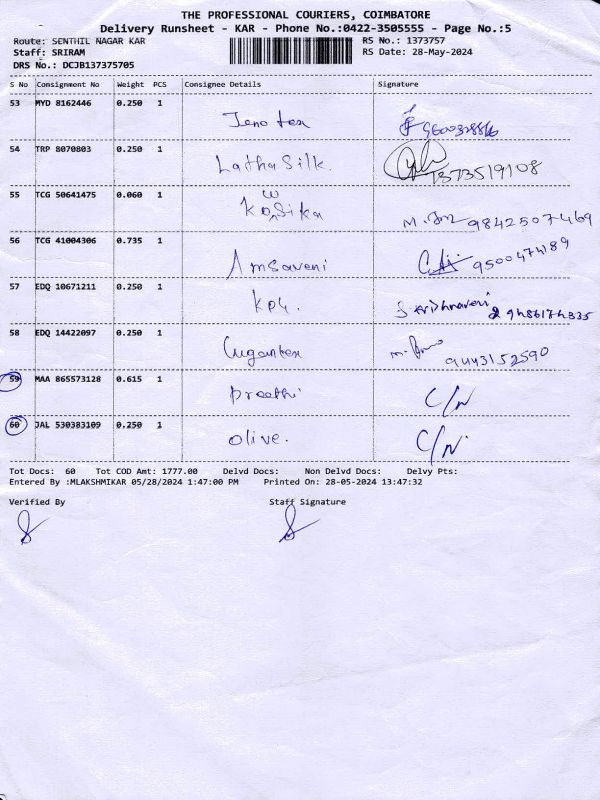 THE PROFESSIONAL COURIERS, COIMBATORE
Delivery Runsheet - KAR - Phone No.:0422-3505555 - Page No.:5
Route: SENTHIL NAGAR KAR RS No.: 1373757
Staff: SRIRAM RS Date: 28-May-2024
DRS No.: DCJB137375705
S No Consignment No Weight PCS Consignee Details Signature
53 MYD 8162446 0.250 1
Jeno tex
54 TRP 8070803 0.250 1
Latha Silk.
1373519108
55 TCG 50641475 0.060 1
KowSika 9842507469
56 TCG 41004306 0.735 1
Amsaveni 9500474189
57 EDQ 10671211 0.250 1
58 EDQ 14422097 0.250 1
9443152590
59 MAA 865573128 0.615 1
Preethi C/N
60 JAL 530383109 0.250 1
Olive. C/N.
Tot Docs: 60 Tot COD Amt: 1777.00 Delvd Docs: Non Delvd Docs: Delvy Pts:
Entered By :MLAKSHMIKAR 05/28/2024 1:47:00 PM Printed On: 28-05-2024 13:47:32
Verified By Staff Signature